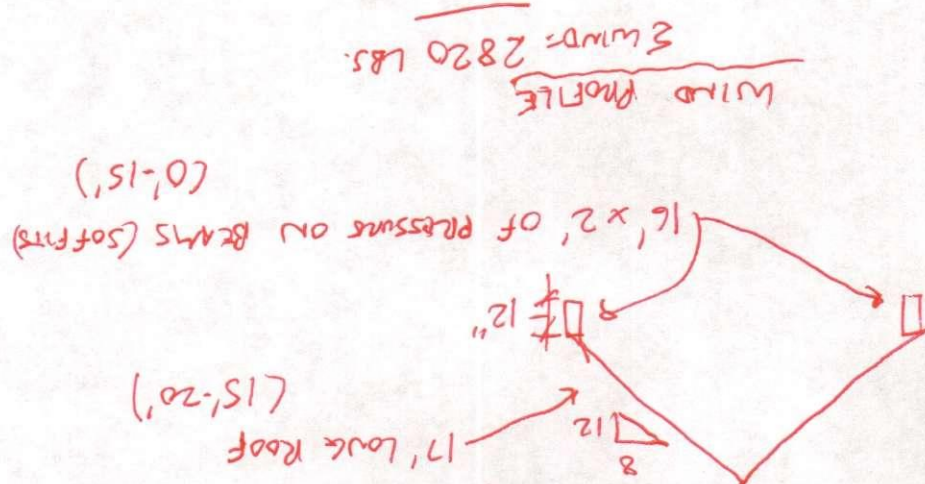 8
12
17' LONG ROOF
(15'-20')
12"
16' x 2' OF PRESSURE ON BEAMS (SOFFITS)
(0'-15')
WIND PROFILE
ΣWIND= 2820 LBS.